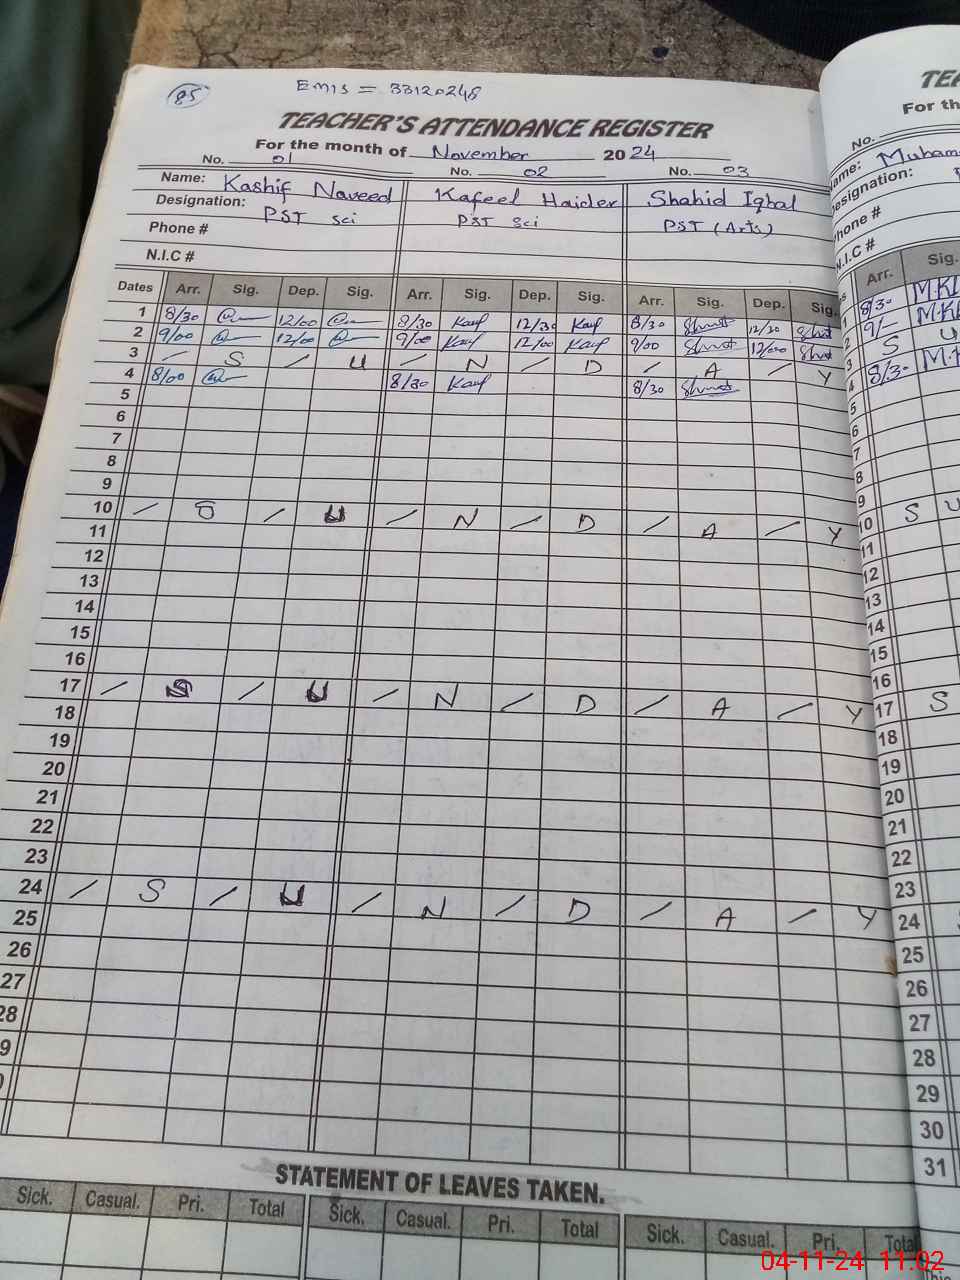 85
EMIS = 33120248
TEACHER'S ATTENDANCE REGISTER
For the month of November 2024
No. 01 No. 02 No. 03
Name: Kashif Naveed Kafeel Haider Shahid Iqbal
Designation: PST Sci PST Sci PST (Arts)
Phone #
N.I.C #
Dates Arr. Sig. Dep. Sig. Arr. Sig. Dep. Sig. Arr. Sig. Dep. Sig.
1 8/30 12/00 8/30 Kauf 12/30 Kauf 8/30 12/30
2 9/00 12/00 9/00 Kauf 12/00 Kauf 9/00 12/00
3 / S / U / N / D / A / Y
4 8/00 8/30 Kauf 8/30
5
6
7
8
9
10 / S / U / N / D / A / Y
11
12
13
14
15
16
17 / S / U / N / D / A / Y
18
19
20
21
22
23
24 / S / U / N / D / A / Y
25
26
27
28
9
STATEMENT OF LEAVES TAKEN.
Sick. Casual. Pri. Total Sick. Casual. Pri. Total Sick. Casual. Pri. Total
TEA
For th
No.
ame: Muham
esignation:
hone #
N.I.C #
s Arr. Sig.
1 8/30
2 9/-
3 S U
4 8/30
5
6
7
8
9
10 S U
11
12
13
14
15
16
17 S
18
19
20
21
22
23
24
25
26
27
28
29
30
31
This
04-11-24 11:02